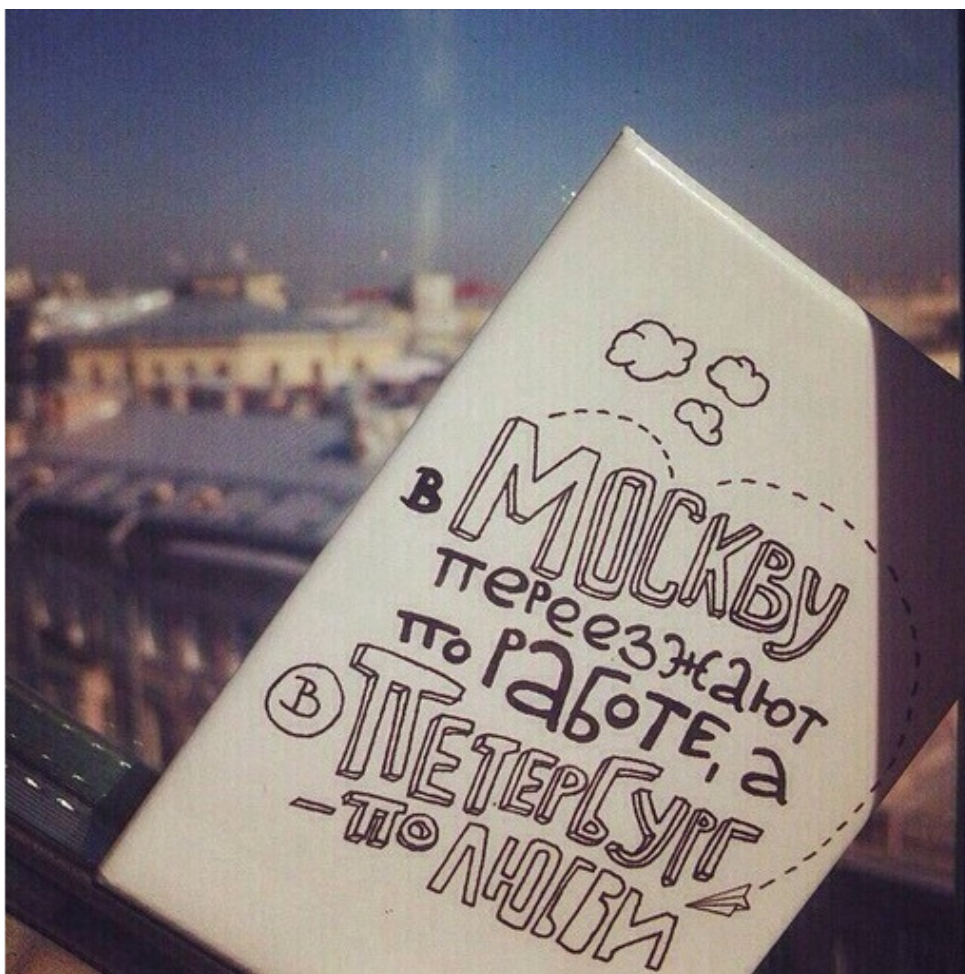 в МОСКВУ
переезжают
по РАБОТЕ, а
В ПЕТЕРБУРГ
– по ЛЮБВИ